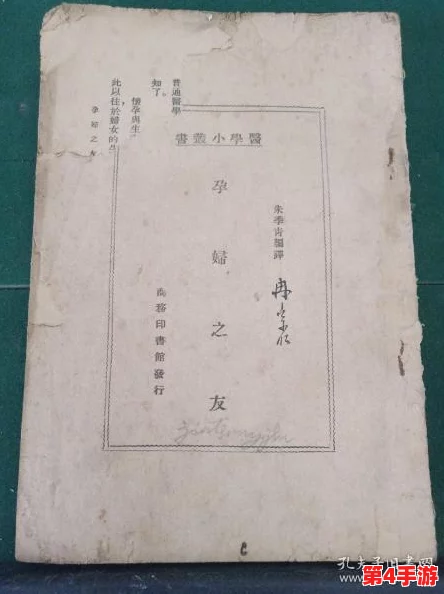 普通醫學
知了。
懷孕與生
此以往，於婦女的
孕婦之友
醫學小叢書
朱季青編譯
孕婦之友
商務印書館發行
孔夫子旧书网
第4手游